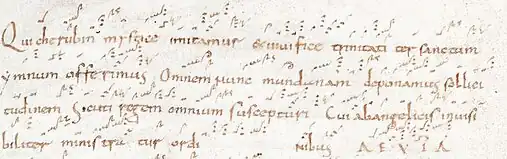 Qui cherubin mystice imitamur & uiuifice trinitati ter sanctum
ymnum offerimus Omnem nunc mundanam deponamus sollici
tudinem Sicuti regem omnium suscepturi Cui abangelicis inuisi
biliter ministra tur ordi nibus A E V I A